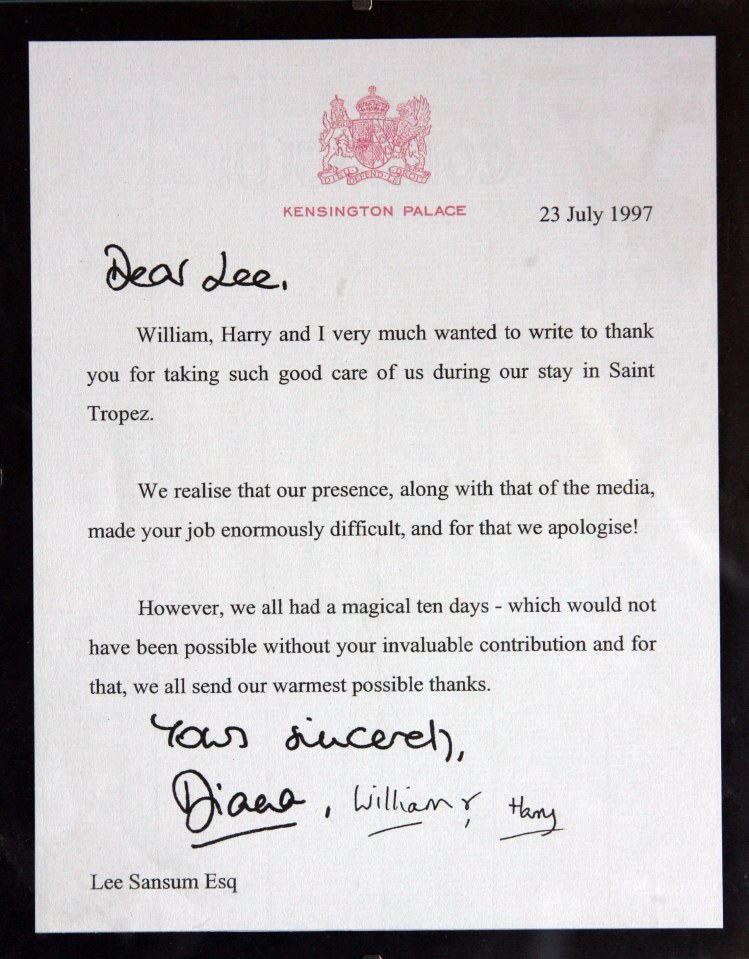 DIEU
DEFEND LE
DROIT
KENSINGTON PALACE
23 July 1997
Dear Lee.
William, Harry and I very much wanted to write to thank
you for taking such good care of us during our stay in Saint
Tropez.
We realise that our presence, along with that of the media,
made your job enormously difficult, and for that we apologise!
However, we all had a magical ten days - which would not
have been possible without your invaluable contribution and for
that, we all send our warmest possible thanks.
Yours sincerely,
Diana, William &, Harry
Lee Sansum Esq